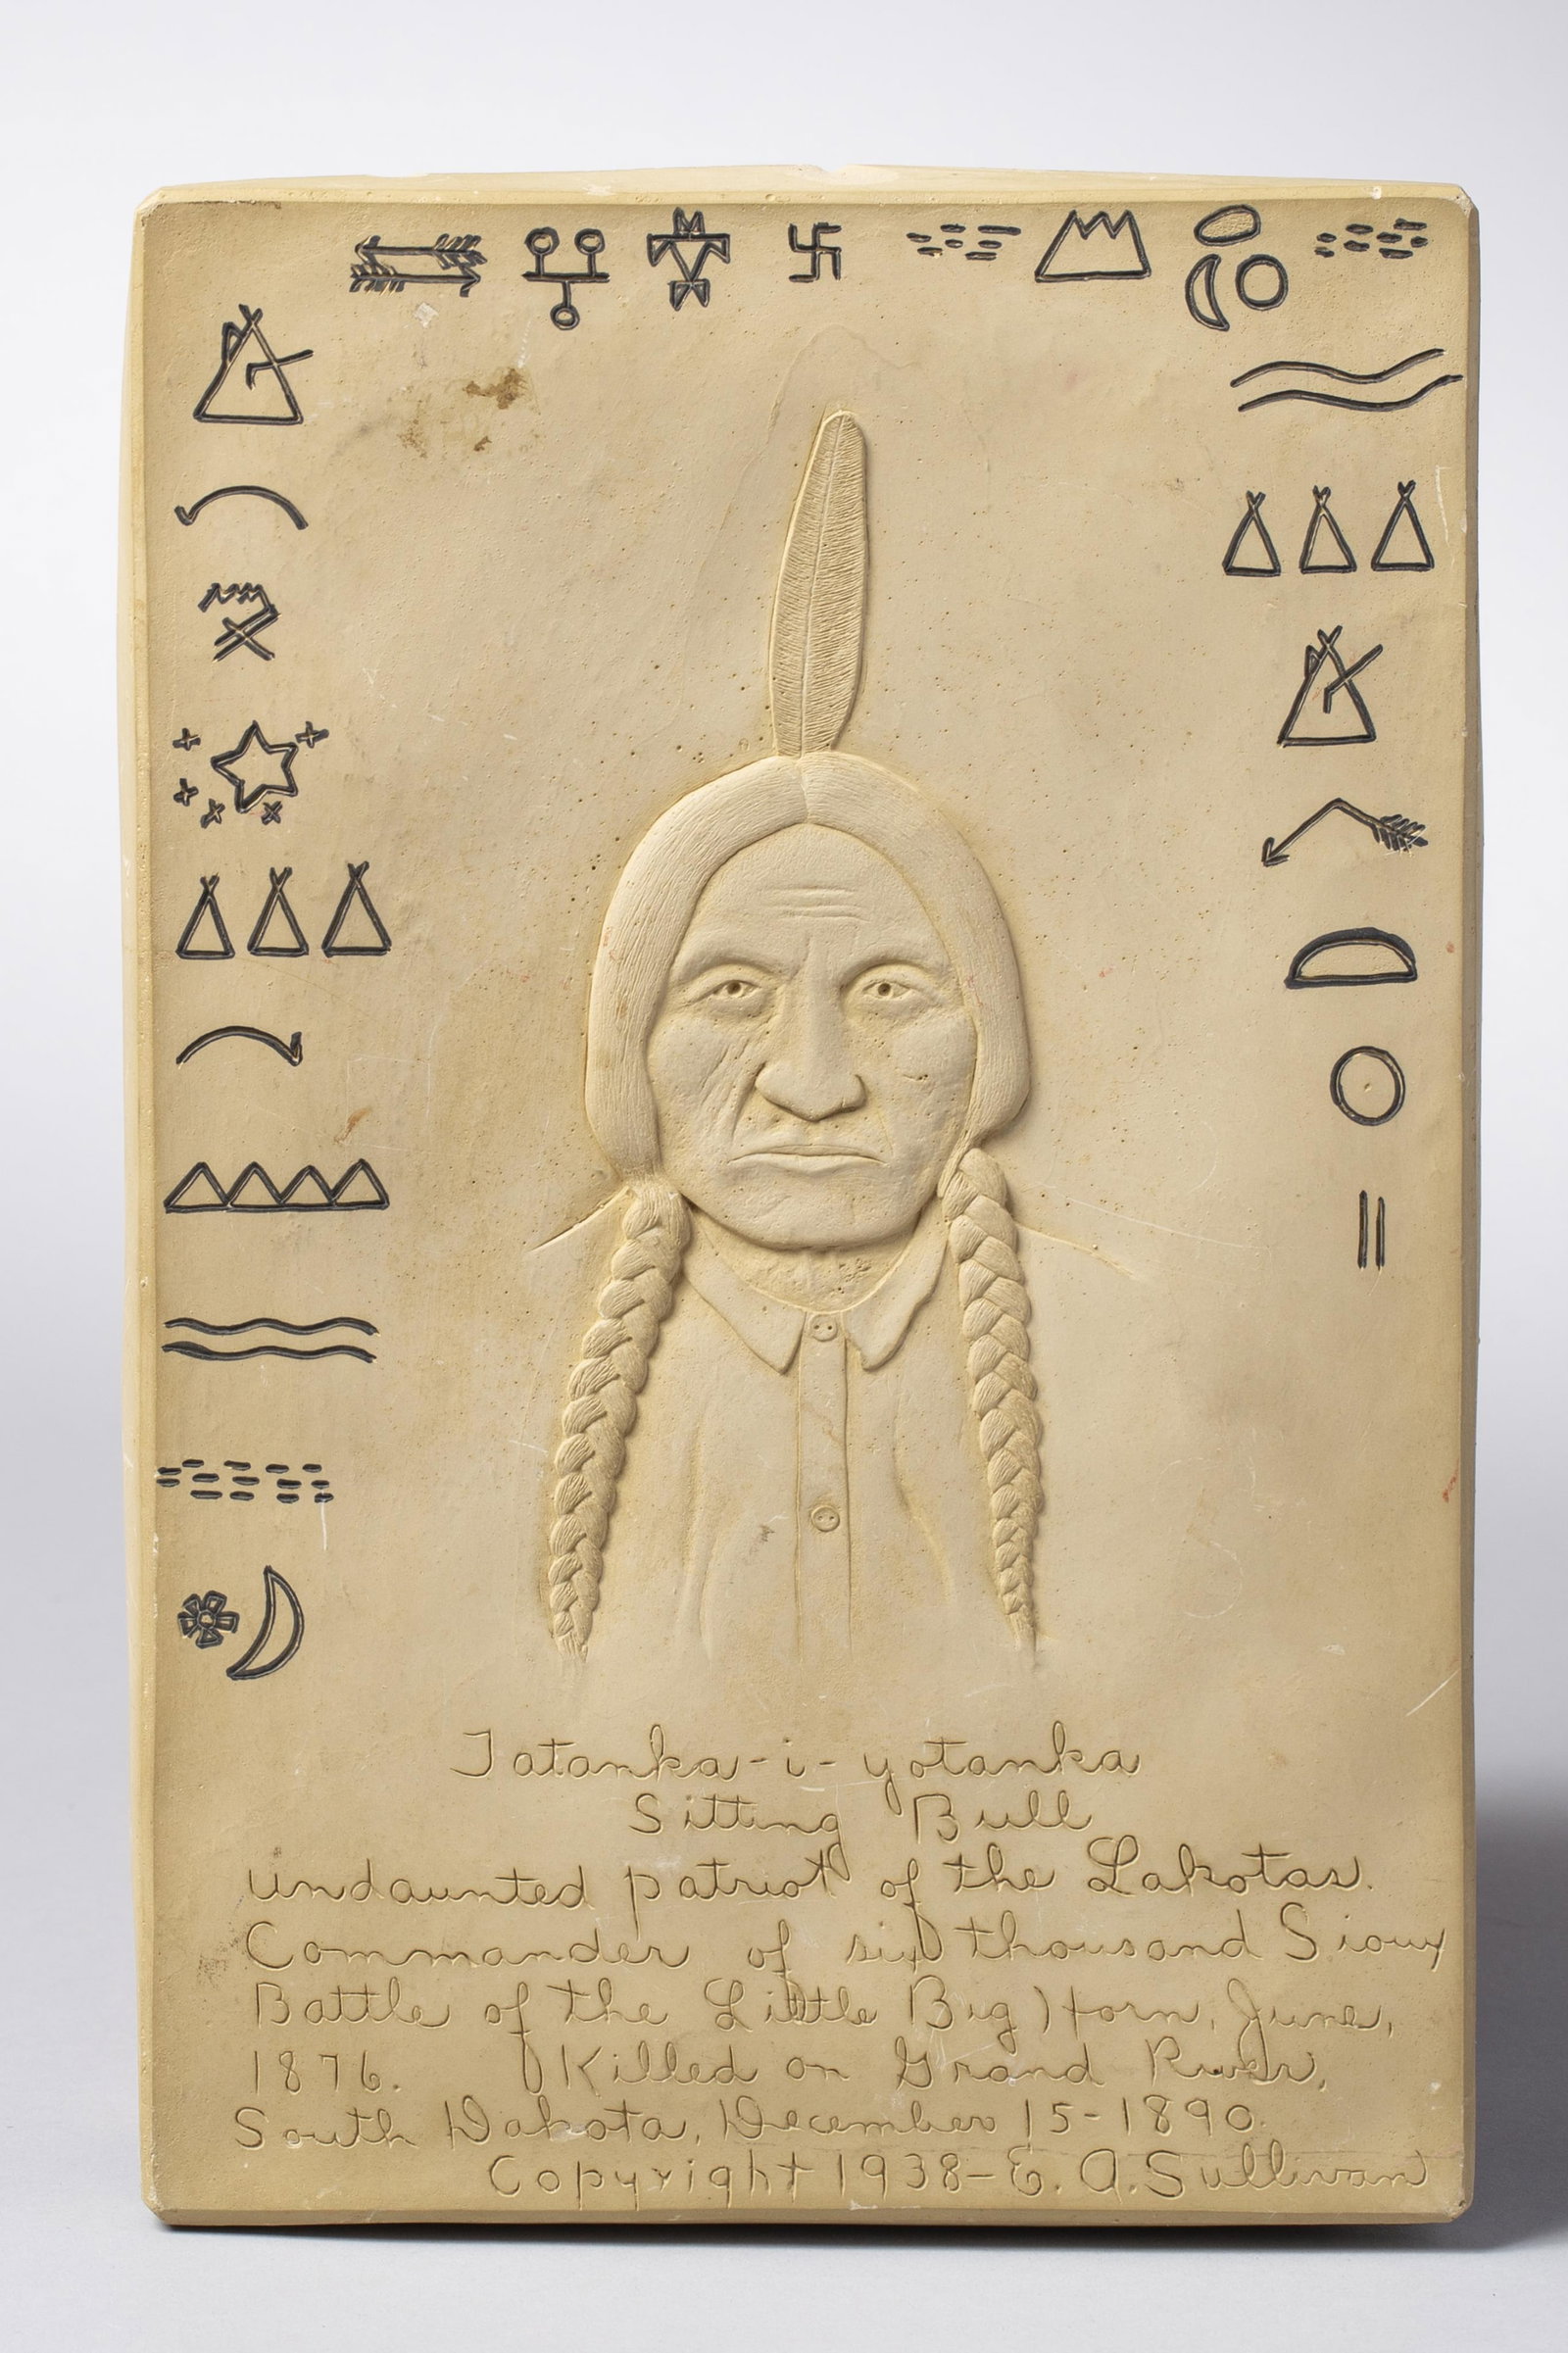 Tatanka-i-yotanka
Sitting Bull
undaunted patriot of the Lakotas.
Commander of six thousand Sioux
Battle of the Little Big Horn, June,
1876. Killed on Grand River,
South Dakota, December 15-1890.
Copyright 1938-E. A. Sullivan